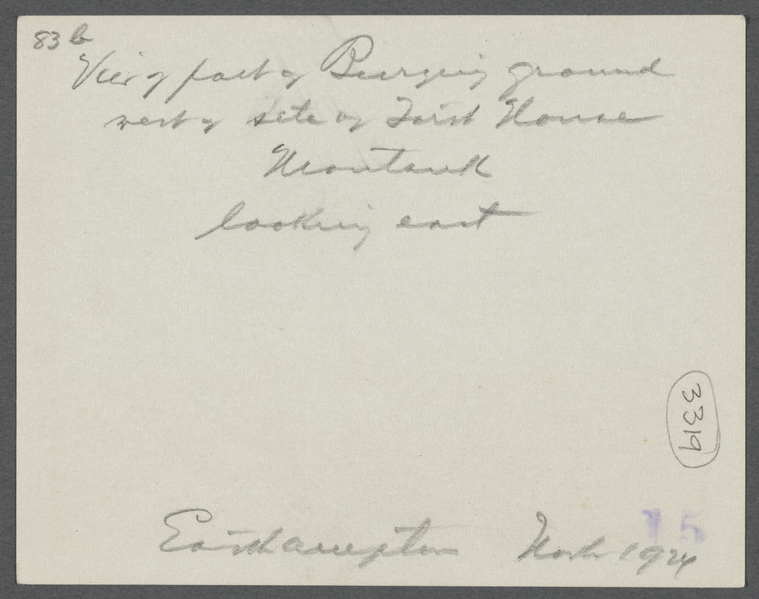 83 b
View of part of Burying ground
west of site of First House
Montauk
looking east
3319
15
Easthampton 1924